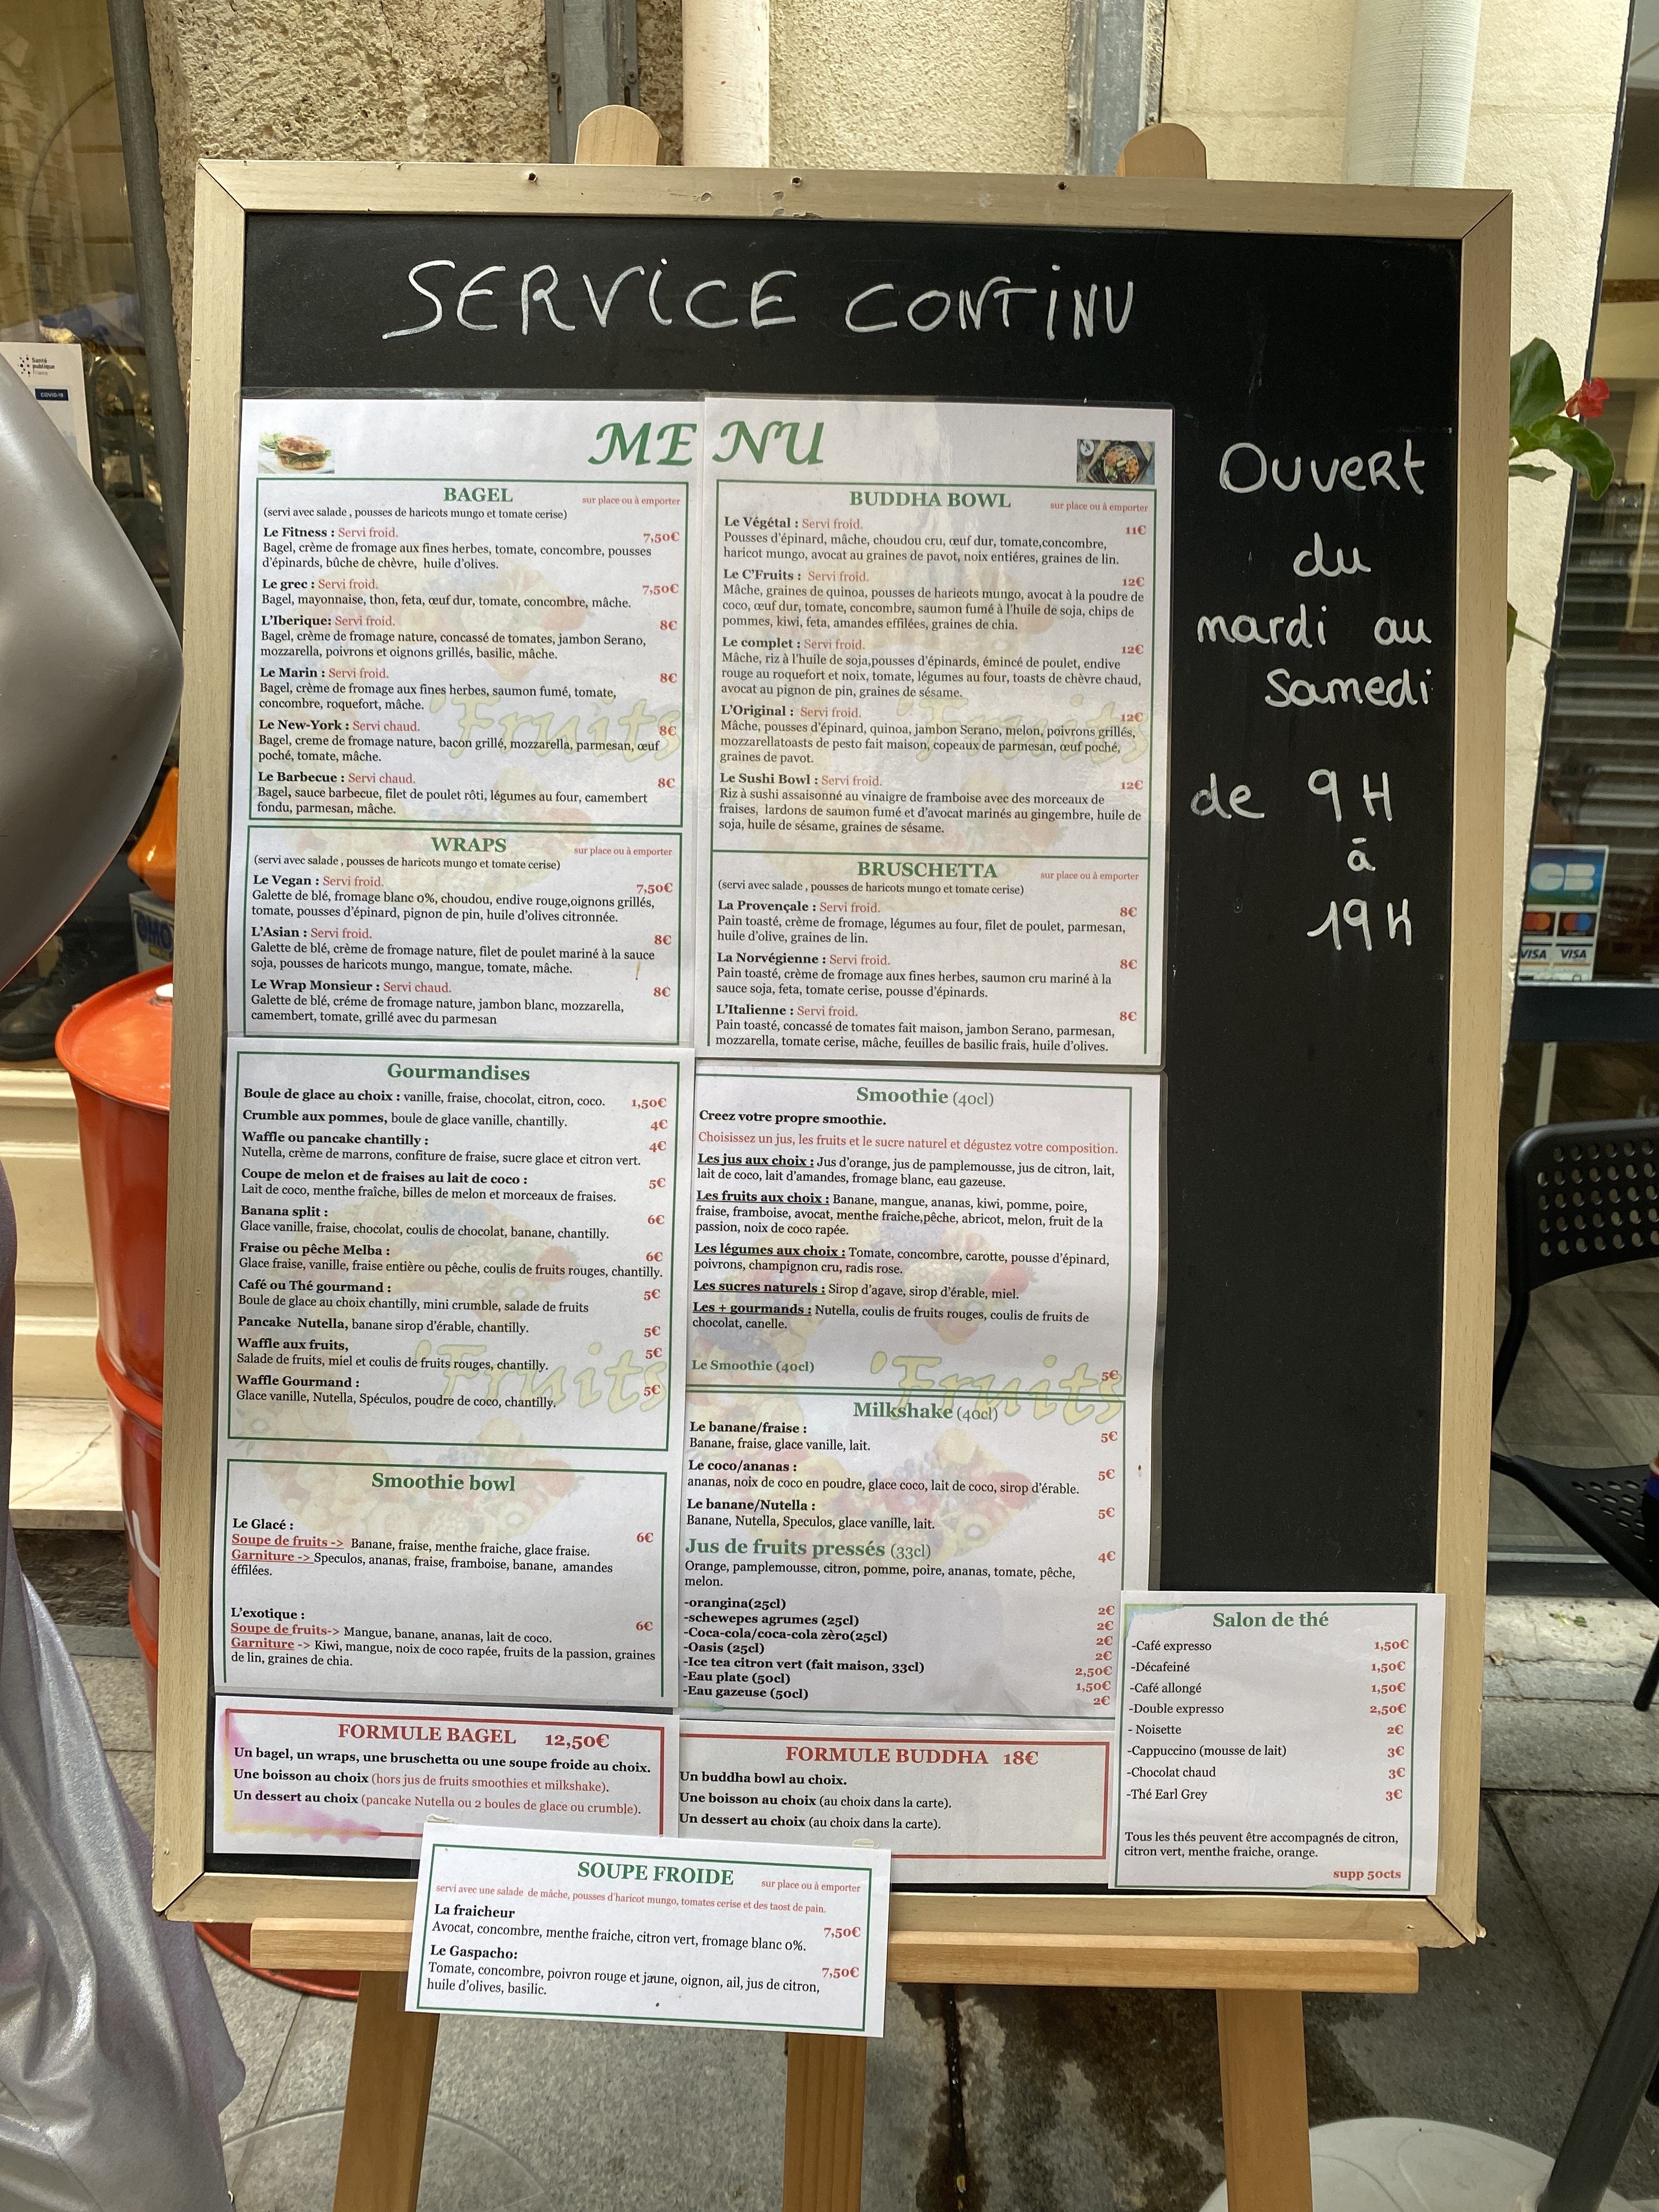 SERVICE CONTINU
Ouvert
du
mardi au
Samedi
de 9H
à
19H
MENU
BAGEL
sur place ou à emporter
(servi avec salade , pousses de haricots mungo et tomate cerise)
Le Fitness : Servi froid. 7,50€
Bagel, crème de fromage aux fines herbes, tomate, concombre, pousses
d'épinards, bûche de chèvre, huile d'olives.
Le grec : Servi froid. 7,50€
Bagel, mayonnaise, thon, feta, œuf dur, tomate, concombre, mâche.
L'Iberique: Servi froid. 8€
Bagel, crème de fromage nature, concassé de tomates, jambon Serano,
mozzarella, poivrons et oignons grillés, basilic, mâche.
Le Marin : Servi froid. 8€
Bagel, crème de fromage aux fines herbes, saumon fumé, tomate,
concombre, roquefort, mâche.
Le New-York : Servi chaud. 8€
Bagel, creme de fromage nature, bacon grillé, mozzarella, parmesan, œuf
poché, tomate, mâche.
Le Barbecue : Servi chaud. 8€
Bagel, sauce barbecue, filet de poulet rôti, légumes au four, camembert
fondu, parmesan, mâche.
WRAPS
sur place ou à emporter
(servi avec salade , pousses de haricots mungo et tomate cerise)
Le Vegan : Servi froid. 7,50€
Galette de blé, fromage blanc 0%, choudou, endive rouge,oignons grillés,
tomate, pousses d'épinard, pignon de pin, huile d'olives citronnée.
L'Asian : Servi froid. 8€
Galette de blé, crème de fromage nature, filet de poulet mariné à la sauce
soja, pousses de haricots mungo, mangue, tomate, mâche.
Le Wrap Monsieur : Servi chaud. 8€
Galette de blé, créme de fromage nature, jambon blanc, mozzarella,
camembert, tomate, grillé avec du parmesan
BUDDHA BOWL
sur place ou à emporter
Le Végétal : Servi froid. 11€
Pousses d'épinard, mâche, choudou cru, œuf dur, tomate,concombre,
haricot mungo, avocat au graines de pavot, noix entiéres, graines de lin.
Le C'Fruits : Servi froid. 12€
Mâche, graines de quinoa, pousses de haricots mungo, avocat à la poudre de
coco, œuf dur, tomate, concombre, saumon fumé à l'huile de soja, chips de
pommes, kiwi, feta, amandes effilées, graines de chia.
Le complet : Servi froid. 12€
Mâche, riz à l'huile de soja,pousses d'épinards, émincé de poulet, endive
rouge au roquefort et noix, tomate, légumes au four, toasts de chèvre chaud,
avocat au pignon de pin, graines de sésame.
L'Original : Servi froid. 12€
Mâche, pousses d'épinard, quinoa, jambon Serano, melon, poivrons grillés,
mozzarellatoasts de pesto fait maison, copeaux de parmesan, œuf poché,
graines de pavot.
Le Sushi Bowl : Servi froid. 12€
Riz à sushi assaisonné au vinaigre de framboise avec des morceaux de
fraises, lardons de saumon fumé et d'avocat marinés au gingembre, huile de
soja, huile de sésame, graines de sésame.
BRUSCHETTA
sur place ou à emporter
(servi avec salade , pousses de haricots mungo et tomate cerise)
La Provençale : Servi froid. 8€
Pain toasté, crème de fromage, légumes au four, filet de poulet, parmesan,
huile d'olive, graines de lin.
La Norvégienne : Servi froid. 8€
Pain toasté, crème de fromage aux fines herbes, saumon cru mariné à la
sauce soja, feta, tomate cerise, pousse d'épinards.
L'Italienne : Servi froid. 8€
Pain toasté, concassé de tomates fait maison, jambon Serano, parmesan,
mozzarella, tomate cerise, mâche, feuilles de basilic frais, huile d'olives.
Gourmandises
Boule de glace au choix : vanille, fraise, chocolat, citron, coco. 1,50€
Crumble aux pommes, boule de glace vanille, chantilly. 4€
Waffle ou pancake chantilly : 4€
Nutella, crème de marrons, confiture de fraise, sucre glace et citron vert.
Coupe de melon et de fraises au lait de coco : 5€
Lait de coco, menthe fraîche, billes de melon et morceaux de fraises.
Banana split : 6€
Glace vanille, fraise, chocolat, coulis de chocolat, banane, chantilly.
Fraise ou pêche Melba : 6€
Glace fraise, vanille, fraise entière ou pêche, coulis de fruits rouges, chantilly.
Café ou Thé gourmand : 5€
Boule de glace au choix chantilly, mini crumble, salade de fruits
Pancake Nutella, banane sirop d'érable, chantilly. 5€
Waffle aux fruits, 5€
Salade de fruits, miel et coulis de fruits rouges, chantilly.
Waffle Gourmand : 5€
Glace vanille, Nutella, Spéculos, poudre de coco, chantilly.
Smoothie bowl
Le Glacé : 6€
Soupe de fruits -> Banane, fraise, menthe fraiche, glace fraise.
Garniture -> Speculos, ananas, fraise, framboise, banane, amandes
éffilées.
L'exotique : 6€
Soupe de fruits-> Mangue, banane, ananas, lait de coco.
Garniture -> Kiwi, mangue, noix de coco rapée, fruits de la passion, graines
de lin, graines de chia.
Smoothie (40cl)
Creez votre propre smoothie.
Choisissez un jus, les fruits et le sucre naturel et dégustez votre composition.
Les jus aux choix : Jus d'orange, jus de pamplemousse, jus de citron, lait,
lait de coco, lait d'amandes, fromage blanc, eau gazeuse.
Les fruits aux choix : Banane, mangue, ananas, kiwi, pomme, poire,
fraise, framboise, avocat, menthe fraiche,pêche, abricot, melon, fruit de la
passion, noix de coco rapée.
Les légumes aux choix : Tomate, concombre, carotte, pousse d'épinard,
poivrons, champignon cru, radis rose.
Les sucres naturels : Sirop d'agave, sirop d'érable, miel.
Les + gourmands : Nutella, coulis de fruits rouges, coulis de fruits de
chocolat, canelle.
Le Smoothie (40cl) 5€
Milkshake (40cl)
Le banane/fraise : 5€
Banane, fraise, glace vanille, lait.
Le coco/ananas : 5€
ananas, noix de coco en poudre, glace coco, lait de coco, sirop d'érable.
Le banane/Nutella : 5€
Banane, Nutella, Speculos, glace vanille, lait.
Jus de fruits pressés (33cl) 4€
Orange, pamplemousse, citron, pomme, poire, ananas, tomate, pêche,
melon.
-orangina(25cl) 2€
-schewepes agrumes (25cl) 2€
-Coca-cola/coca-cola zèro(25cl) 2€
-Oasis (25cl) 2€
-Ice tea citron vert (fait maison, 33cl) 2,50€
-Eau plate (50cl) 1,50€
-Eau gazeuse (50cl) 2€
FORMULE BAGEL 12,50€
Un bagel, un wraps, une bruschetta ou une soupe froide au choix.
Une boisson au choix (hors jus de fruits smoothies et milkshake).
Un dessert au choix (pancake Nutella ou 2 boules de glace ou crumble).
FORMULE BUDDHA 18€
Un buddha bowl au choix.
Une boisson au choix (au choix dans la carte).
Un dessert au choix (au choix dans la carte).
Salon de thé
-Café expresso 1,50€
-Décafeiné 1,50€
-Café allongé 1,50€
-Double expresso 2,50€
- Noisette 2€
-Cappuccino (mousse de lait) 3€
-Chocolat chaud 3€
-Thé Earl Grey 3€
Tous les thés peuvent être accompagnés de citron,
citron vert, menthe fraiche, orange.
supp 50cts
SOUPE FROIDE
sur place ou à emporter
servi avec une salade de mâche, pousses d'haricot mungo, tomates cerise et des taost de pain.
La fraicheur
Avocat, concombre, menthe fraiche, citron vert, fromage blanc 0%. 7,50€
Le Gaspacho:
Tomate, concombre, poivron rouge et jaune, oignon, ail, jus de citron, 7,50€
huile d'olives, basilic.
'Fruits
'Fruits
'Fruits
'Fruits
Santé
publique
France
COVID-19
CB
VISA VISA